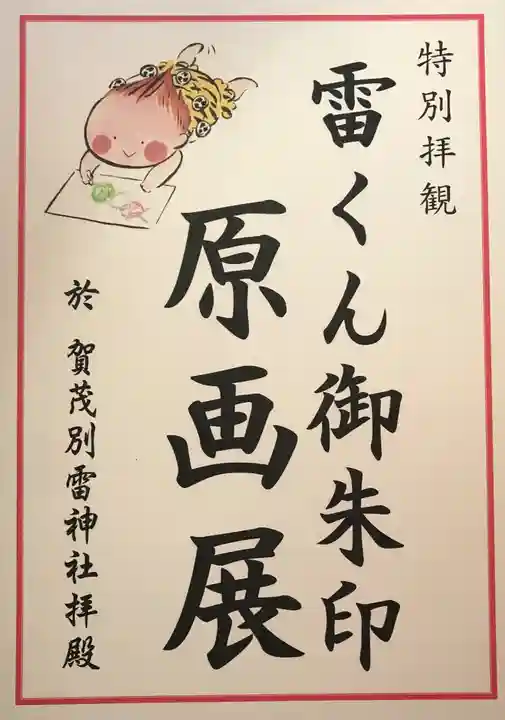 特別拝観
雷くん御朱印
原画展
於 賀茂別雷神社拝殿